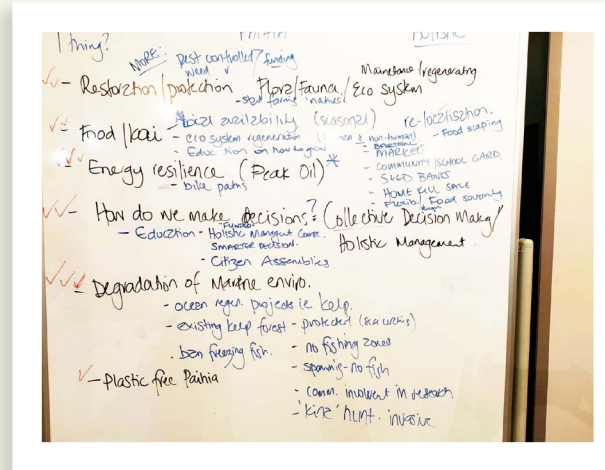 1 thing?
HOLISTIC
MORE: pest controlled/funding
weed
Maintaine/regenerating
- Restoration/protection Flora/Fauna/Eco System
- start farming natives
- Food/kai - Local availability (seasonal) re-localisation.
- eco system regeneration & non-human) - Food scaping
- Education on how to grow
- MARKETS
- COMMUNITY/SCHOOL GARD.
- SEED BANKS
- HOME KILL SALE
- Food soverinty
- Energy resilience (Peak Oil) *
- bike paths
- How do we make decisions? (Collective Decision Makg/
FUNDED
- Education - Holistic Mangmt Course.
Holistic Management.
SMARTER DECISION.
- Citizen Assemblies
- Degradation of Marine enviro.
- ocean regen. projects ie kelp.
- existing kelp forest - protected (sea urchins)
. ban freezing fish. - no fishing zones
- spawning - no fish
- Plastic free Paihia
- comm. involvent in research
- 'Kina' hunt. invasive